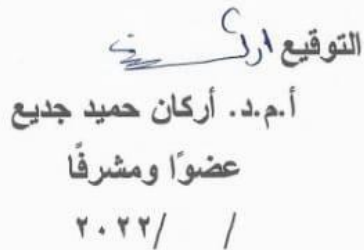 التوقيع
أ.م.د. أركان حميد جديع
عضوًا ومشرفًا
/ /٢٠٢٢